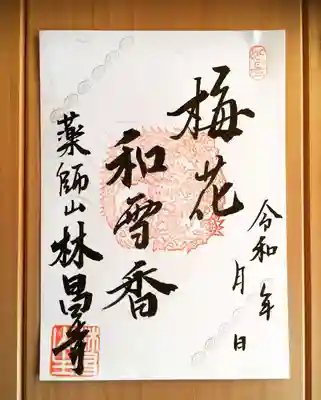 梅花
和雪香
令和 年 月 日
薬師山林昌寺